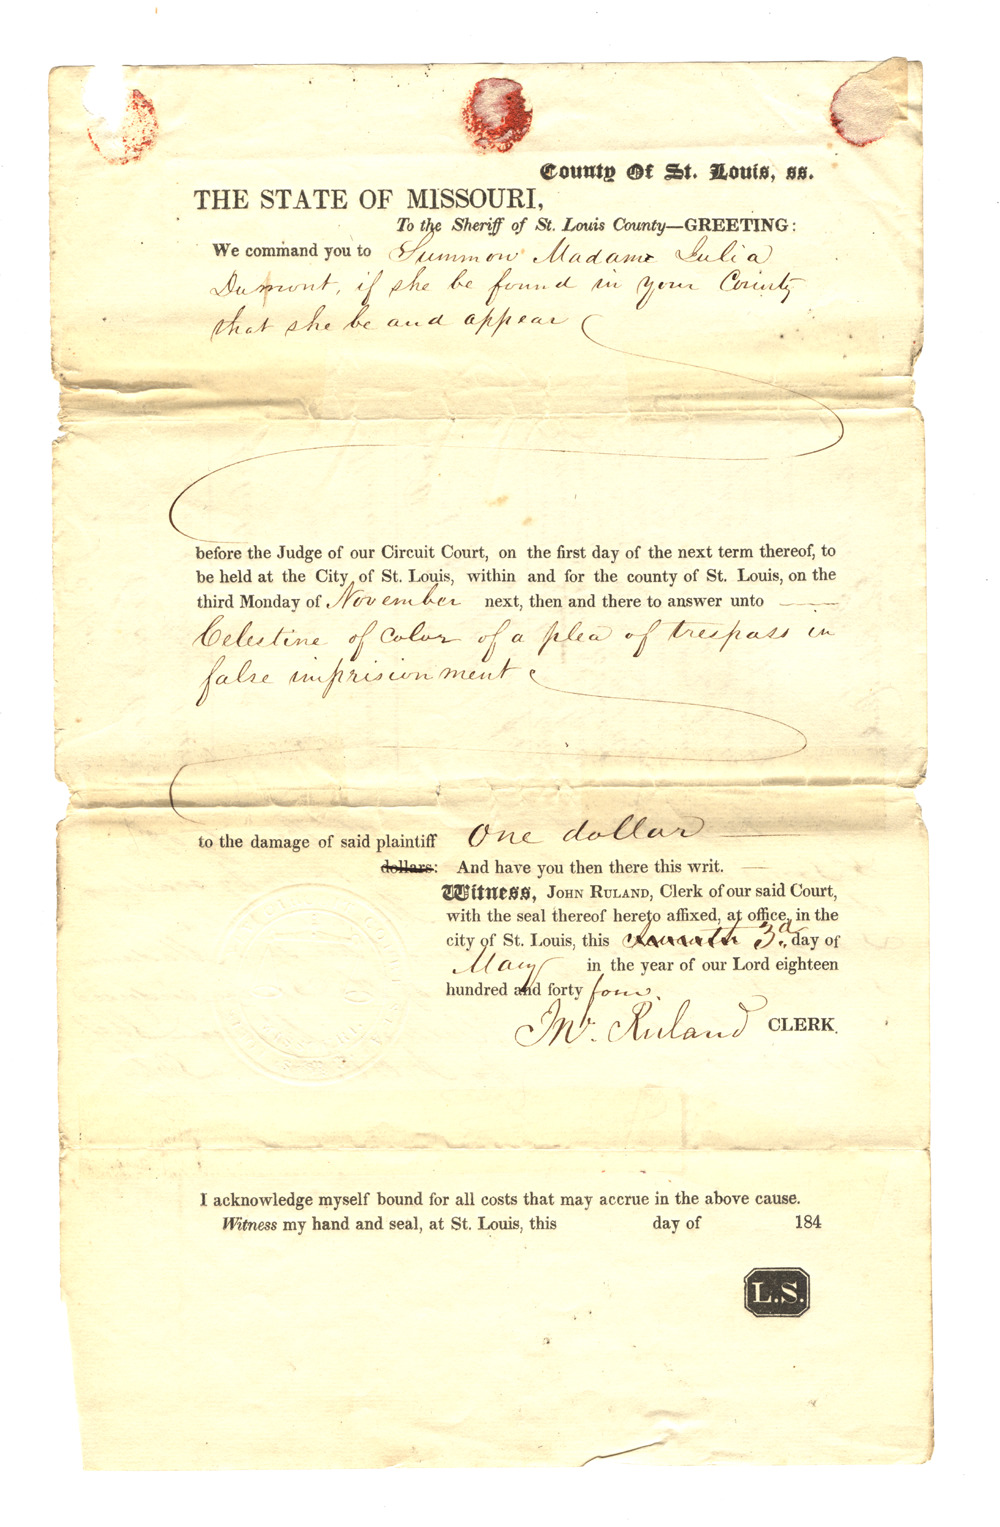 County Of St. Louis, ss.
THE STATE OF MISSOURI,
To the Sheriff of St. Louis County—GREETING:
We command you to Summon Madame Julia
Dumont, if she be found in your County
that she be and appear
before the Judge of our Circuit Court, on the first day of the next term thereof, to
be held at the City of St. Louis, within and for the county of St. Louis, on the
third Monday of November next, then and there to answer unto
Celestine of color of a plea of trespass in
false imprisionment
to the damage of said plaintiff One dollar
dollars: And have you then there this writ.
Witness, JOHN RULAND, Clerk of our said Court,
with the seal thereof hereto affixed, at office, in the
city of St. Louis, this 3d. day of
May in the year of our Lord eighteen
hundred and forty four.
Jno. Ruland CLERK.
I acknowledge myself bound for all costs that may accrue in the above cause.
Witness my hand and seal, at St. Louis, this day of 184
L.S.